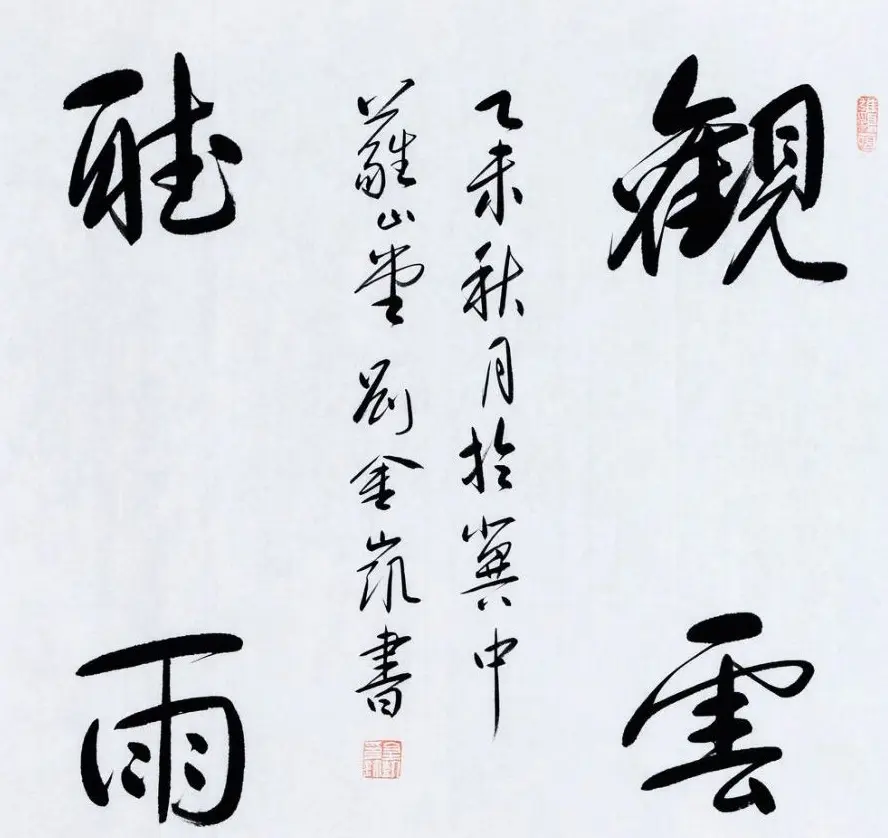 觀雲
乙未秋月於冀中
蘿山堂劉金凱書
聴雨